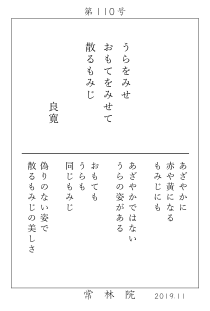 第110号
うらをみせ
おもてをみせて
散るもみじ
良寛
あざやかに
赤や黄になる
もみじにも
あざやかではない
うらの姿がある
おもても
うらも
同じもみじ
偽りのない姿で
散るもみじの美しさ
常林院
2019.11